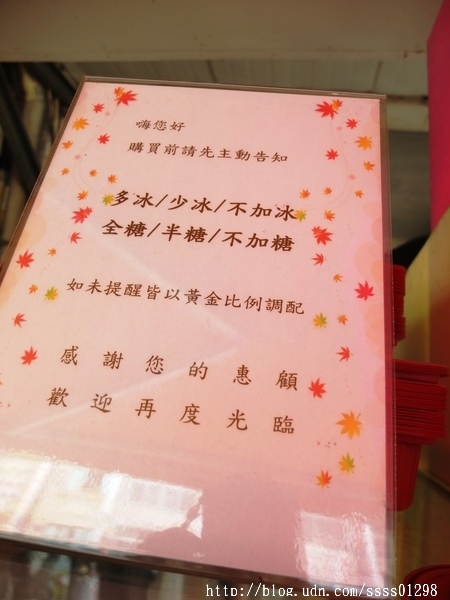 嗨您好
購買前請先主動告知
多冰/少冰/不加冰
全糖/半糖/不加糖
如未提醒皆以黃金比例調配
感謝您的惠顧
歡迎再度光臨
http://blog.udn.com/ssss01298